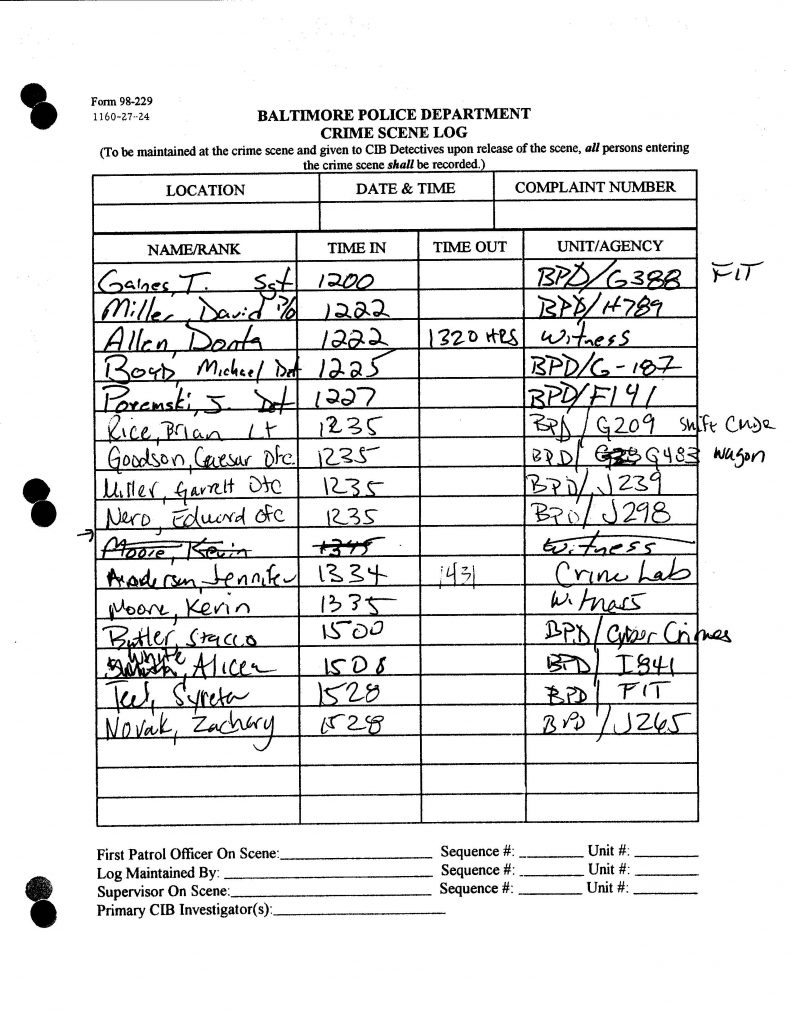 Form 98-229
1160-27-24
BALTIMORE POLICE DEPARTMENT
CRIME SCENE LOG
(To be maintained at the crime scene and given to CIB Detectives upon release of the scene, all persons entering
the crime scene shall be recorded.)
LOCATION DATE & TIME COMPLAINT NUMBER
NAME/RANK TIME IN TIME OUT UNIT/AGENCY
Gaines, T. Sgt 1200 BPD/G388 FIT
Miller, David P/O 1222 BPD/H789
Allen, Donta 1222 1320 HRS Witness
Boyd, Michael Det 1225 BPD/G-187
Poremski, J. Det 1227 BPD/F141
Rice, Brian Lt 1235 BPD/G209 Shift
Goodson, Caesar Ofc. 1235 BPD/ G483 Wagon
Miller, Garrett Ofc 1235 BPD/J239
Nero, Edward Ofc 1235 BPD/J298
Moore, Kevin 1345 Witness
Anderson, Jennifer 1334 1431 Crime Lab
Moore, Kevin 1335 Witness
Butler, Stacco 1500 BPD/Cyber Crimes
White, Alicea 1508 BPD/ I841
Teel, Syreta 1528 BPD/ FIT
Novak, Zachary 1528 BPD/J265
First Patrol Officer On Scene: Sequence #: Unit #:
Log Maintained By: Sequence #: Unit #:
Supervisor On Scene: Sequence #: Unit #:
Primary CIB Investigator(s):